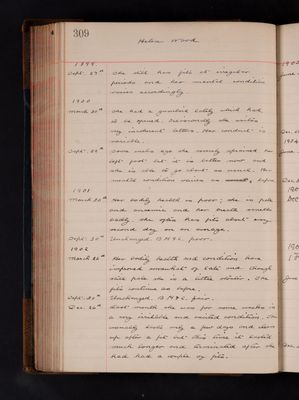 309
Helen Wood
1899.
Sept. 27th She still has fits at irregular
periods and her mental condition
varies accordingly.
1900
March 31st She had a gumboil lately which had
to be opened. Occasionally she writes
very incoherent letters. Her conduct is
variable.
Sept. 29th Some weeks ago she severely sprained her
left foot but it is better now and
she is able to go about as usual. Her
mental condition varies as before
1901
March 30th Her bodily health is poor; she is pale
and anaemic and her breath smells
badly. She often has fits about every
second day on an average.
Sept. 30th Unchanged. B.H.&C. poor.
1902
March 26th Her bodily health and condition have
improved somewhat of late and though
still pale she is a little stouter. The
fits continue as before.
Sept. Unchanged. B.H.&C. fair.
Dec. 26th Last month she was for some weeks in
a very irritable and excited condition. This
usually lasts only a few days and clears
up after a fit but this time it lasted
much longer and terminated after she
had had a couple of fits.